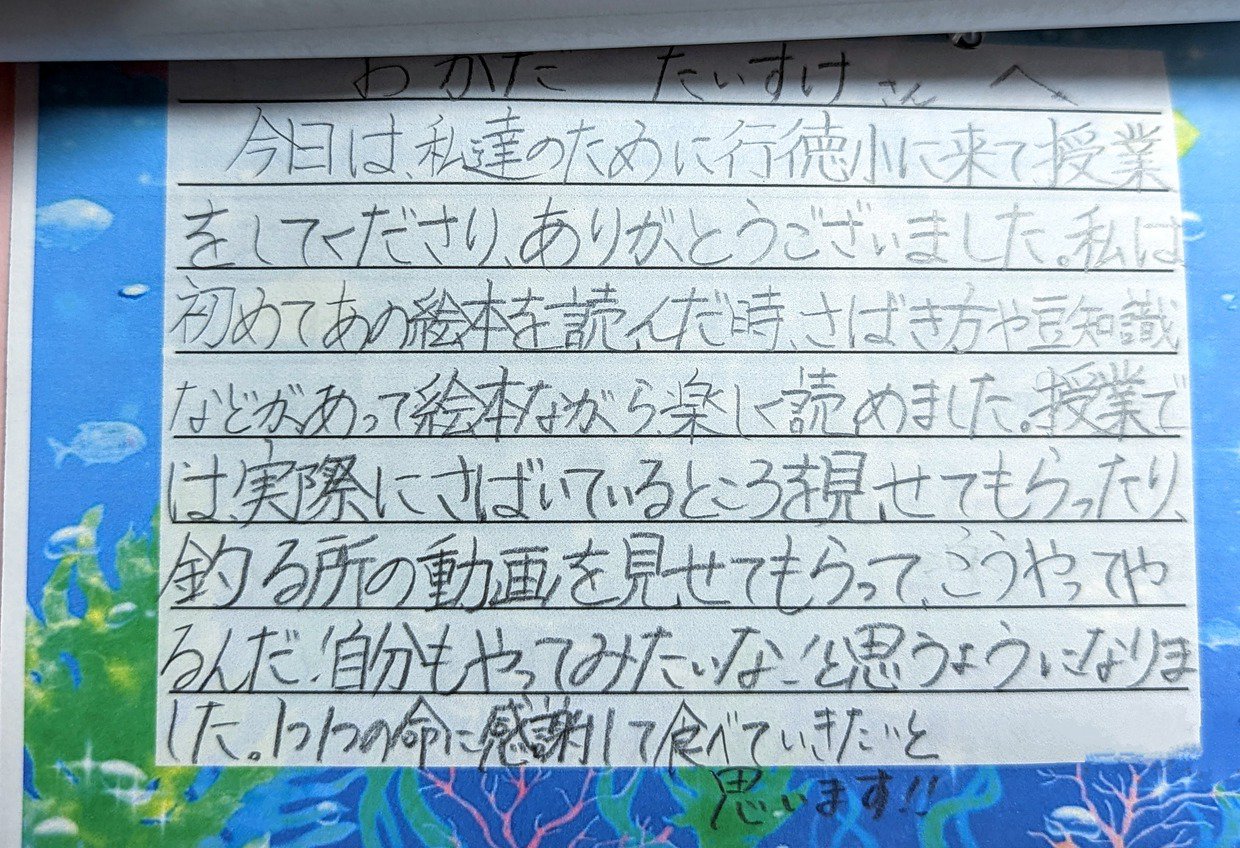 おかだ たいすけ さん へ
今日は、私達のために行徳小に来て授業
をしてくださり、ありがとうございました。私は
初めてあの絵本を読んだ時、さばき方や豆知識
などがあって絵本ながら、楽しく読めました。授業で
は、実際にさばいているところを見せてもらったり、
釣る所の動画を見せてもらって、こうやってや
るんだ!自分もやってみたいな!と思うようになりま
した。1つ1つの命に感謝して食べていきたいと
思います!!